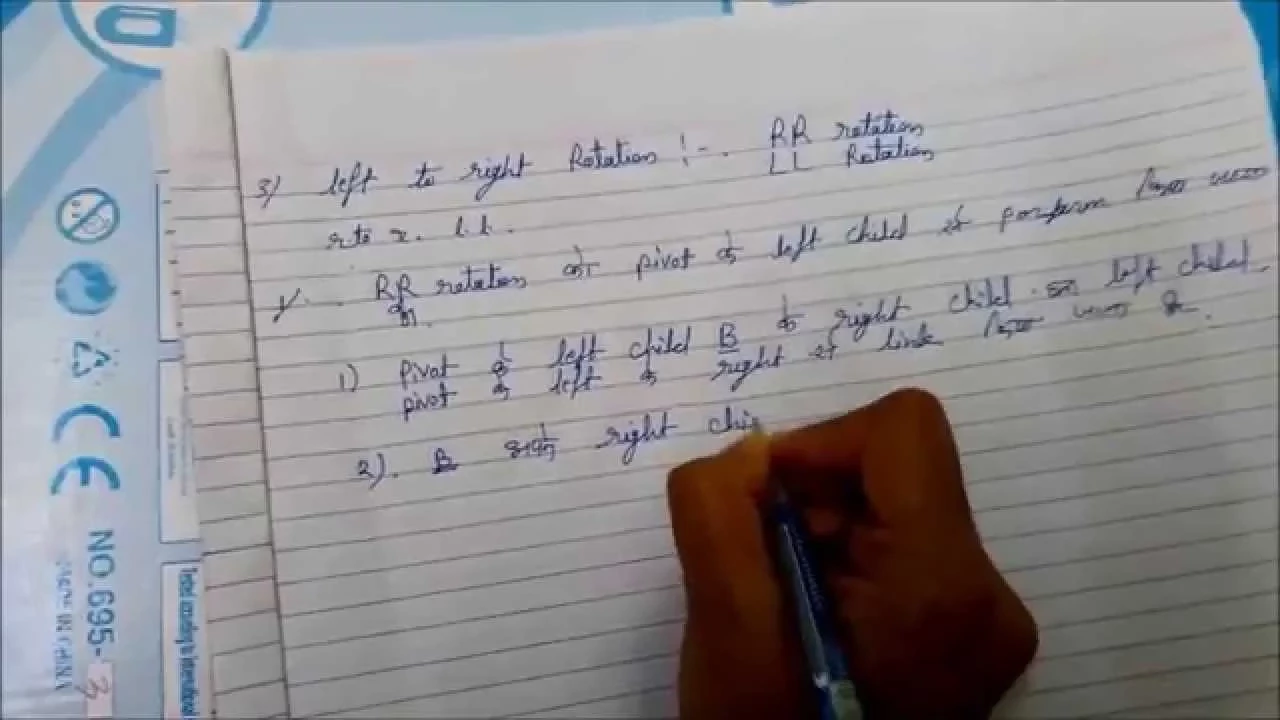 3) left to right Rotation :-. RR rotation
LL Rotation
r to r. l.l.
RR rotation का pivot के left child से perform किया जाता
1) Pivot के left child B के right child का left child
pivot के left के right से link किया जाता है.
2). B right chi
NO.695-3
MADE IN CHINA
CE
Tested according to international